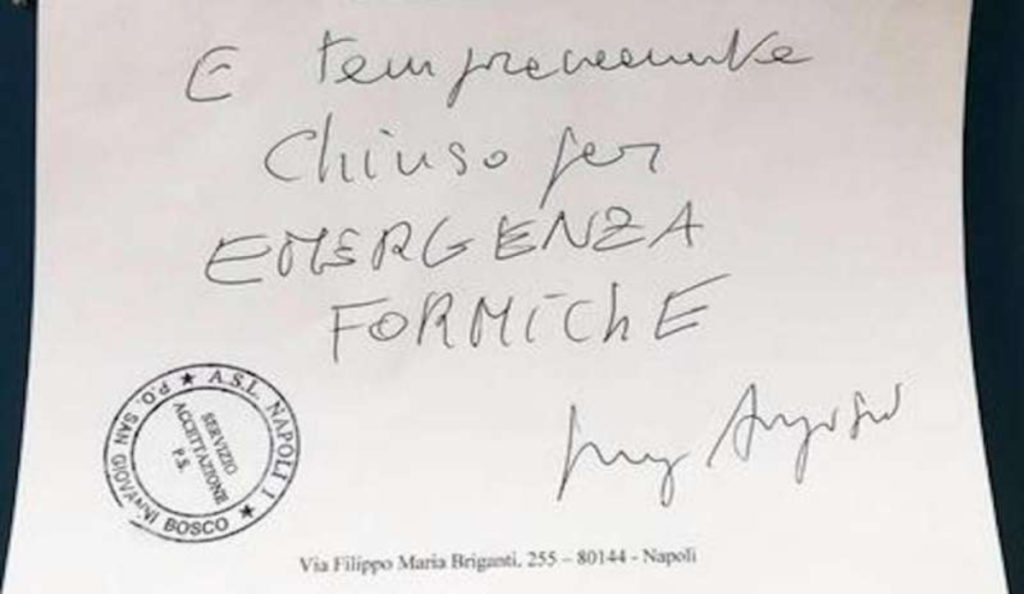 E temporaneamente
Chiuso per
EMERGENZA
FORMIChE
★ A.S.L. NAPOLI 1 ★
P.O. SAN GIOVANNI BOSCO
SERVIZIO
ACCETTAZIONE
P.S.
Via Filippo Maria Briganti, 255 – 80144 - Napoli